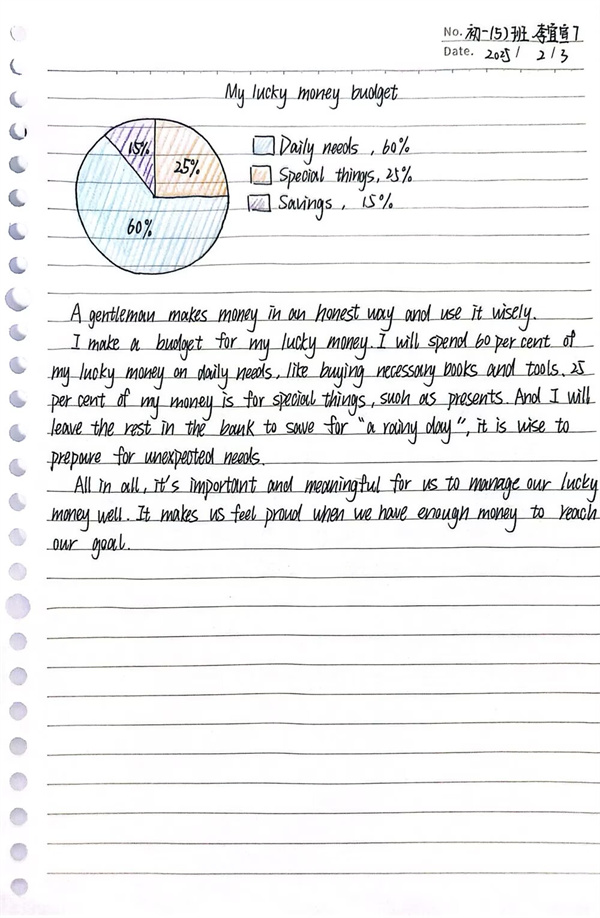 No. 初一(5)班 李宜宣7
Date. 2025/ 2/3
My lucky money budget
15%
25%
60%
Daily needs, 60%
Special things, 25%
Savings, 15%
A gentleman makes money in an honest way and use it wisely.
I make a budget for my lucky money. I will spend 60 per cent of
my lucky money on daily needs, like buying necessary books and tools. 25
per cent of my money is for special things, such as presents. And I will
leave the rest in the bank to save for "a rainy day", it is wise to
prepare for unexpected needs.
All in all, it's important and meaningful for us to manage our lucky
money well. It makes us feel proud when we have enough money to reach
our goal.